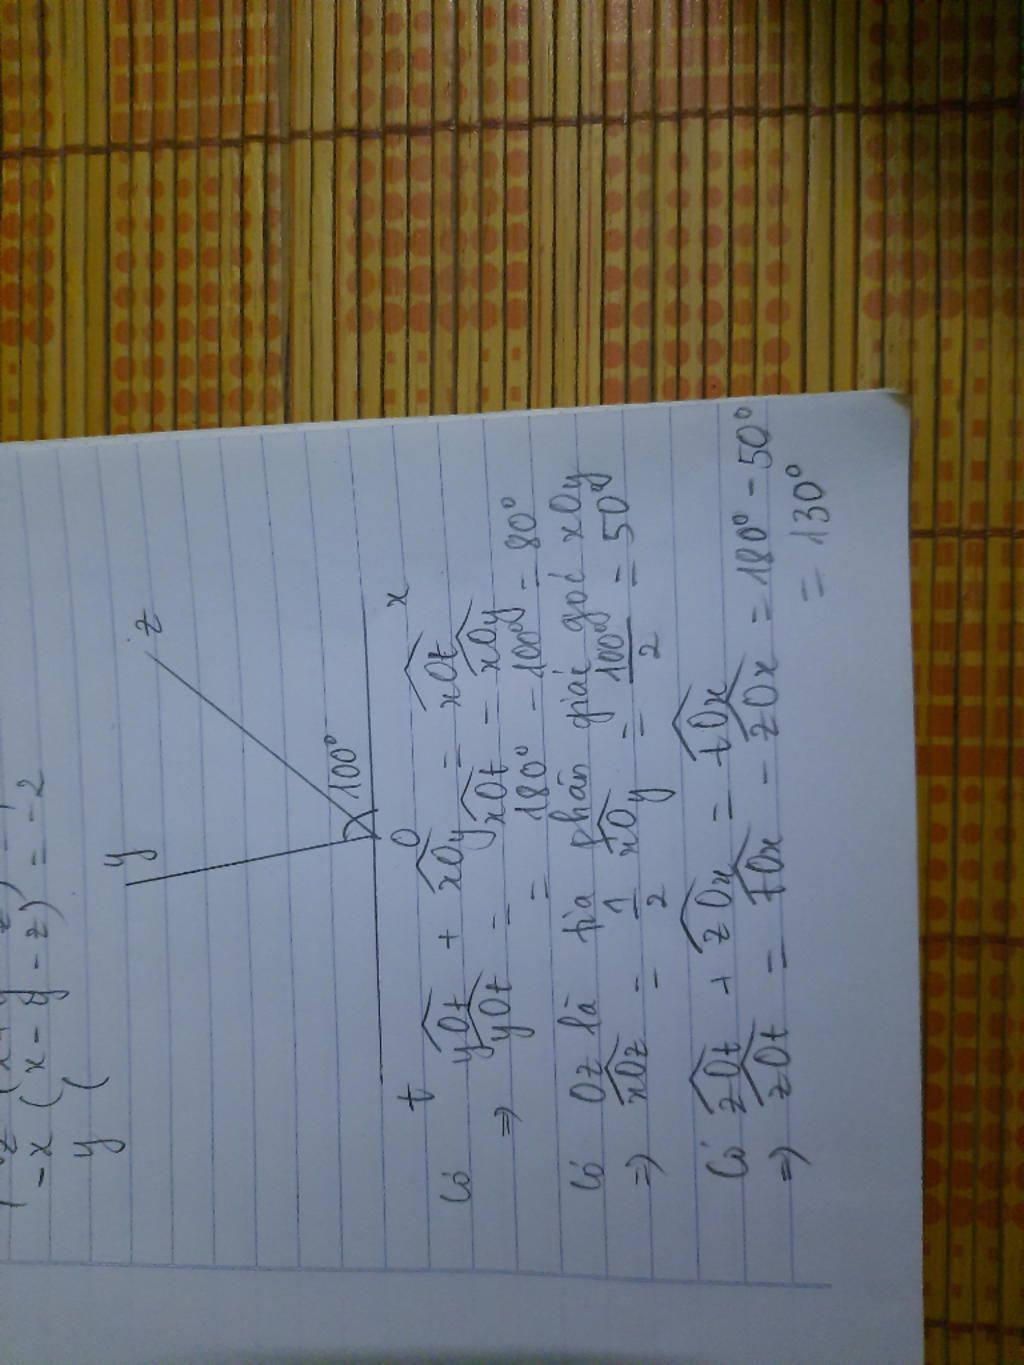 -x (x - y - z) = -2
y (
y
z
100°
t
O
x
Có yOt + xOy = xOt
=> yOt = xOt - xOy
= 180° - 100° = 80°
Có Oz là tia phân giác góc xOy
=> xOz = 1/2 xOy = 100°/2 = 50°
Có zOt + zOx = tOx
=> zOt = tOx - zOx = 180° - 50°
= 130°